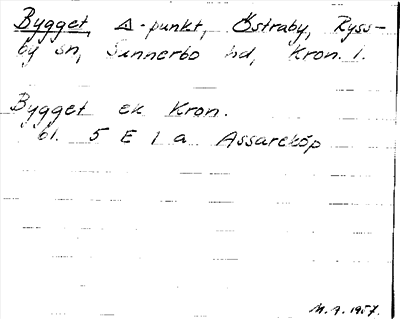 Bygget, △-punkt, Östraby, Ryss-
by sn, Sunnerbo hd, Kron. l.
Bygget ek Kron.
bl. 5 E 1 a Assareköp
M. A. 1957.